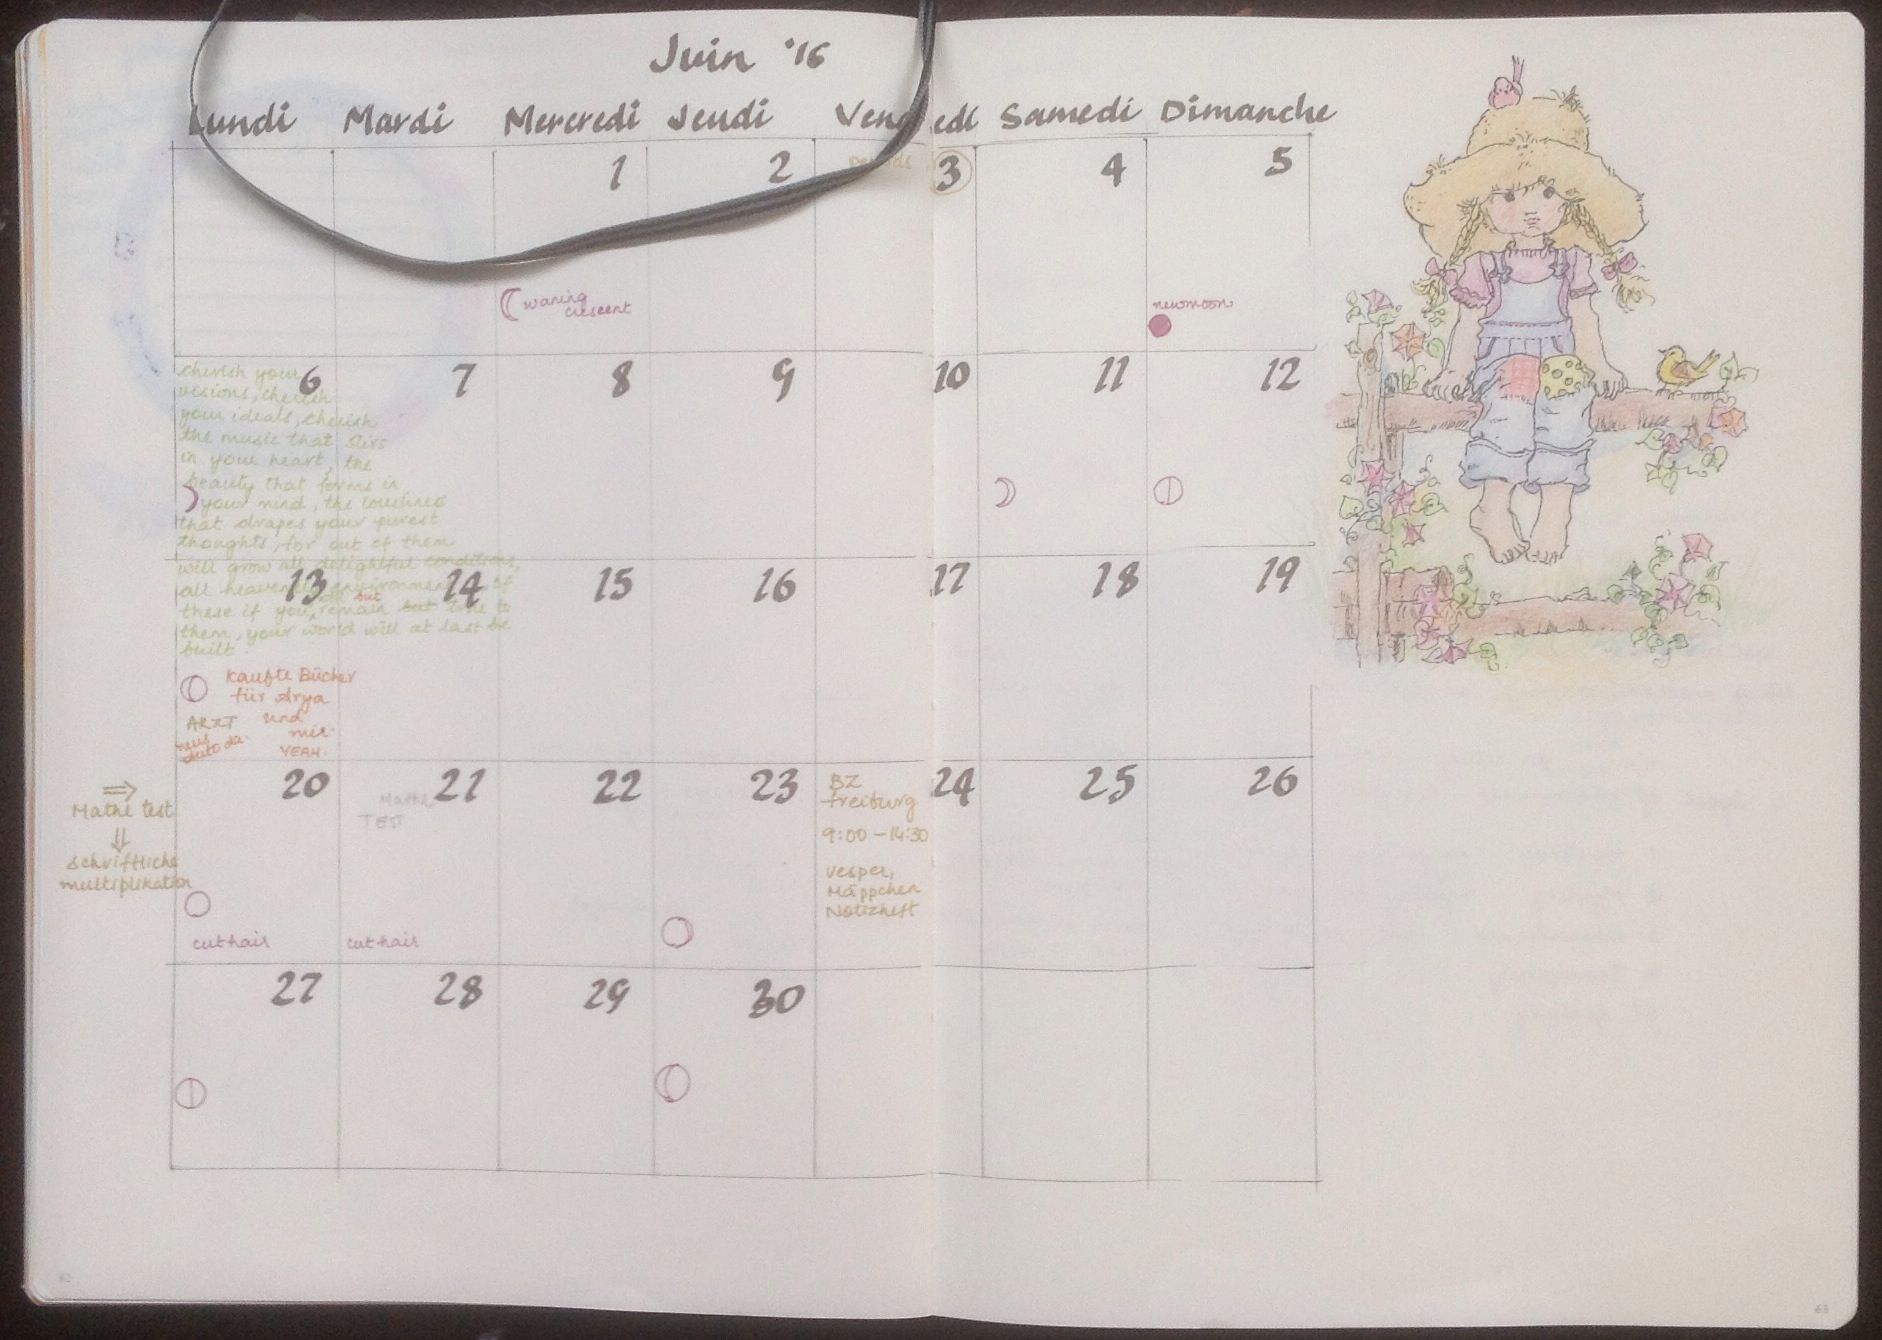 Juin '16
Lundi Mardi Mercredi Jeudi Vendredi Samedi Dimanche
1 2 3 4 5
waning
crescent
newmoon
6 7 8 9 10 11 12
cherish your
visions, cherish
your ideals, cherish
the music that stirs
in your heart, the
beauty that forms in
your mind, the loveliness
that drapes your purest
thoughts, for out of them
will grow all delightful conditions,
all heavenly environment of
these if you remain but true to
them, your world will at last be
built.
13 14 15 16 17 18 19
kaufte Bücher
für Arya
und
mir.
YEAH.
ARZT
neues
Auto da.
20 21 22 23 24 25 26
⇒
Mathe test
⇓
schriftliche
multiplikation
Mathe
TEST
BZ
freiburg
9:00 - 14:30
vesper,
Mäppchen
Notizheft
cut hair
cut hair
27 28 29 30
63